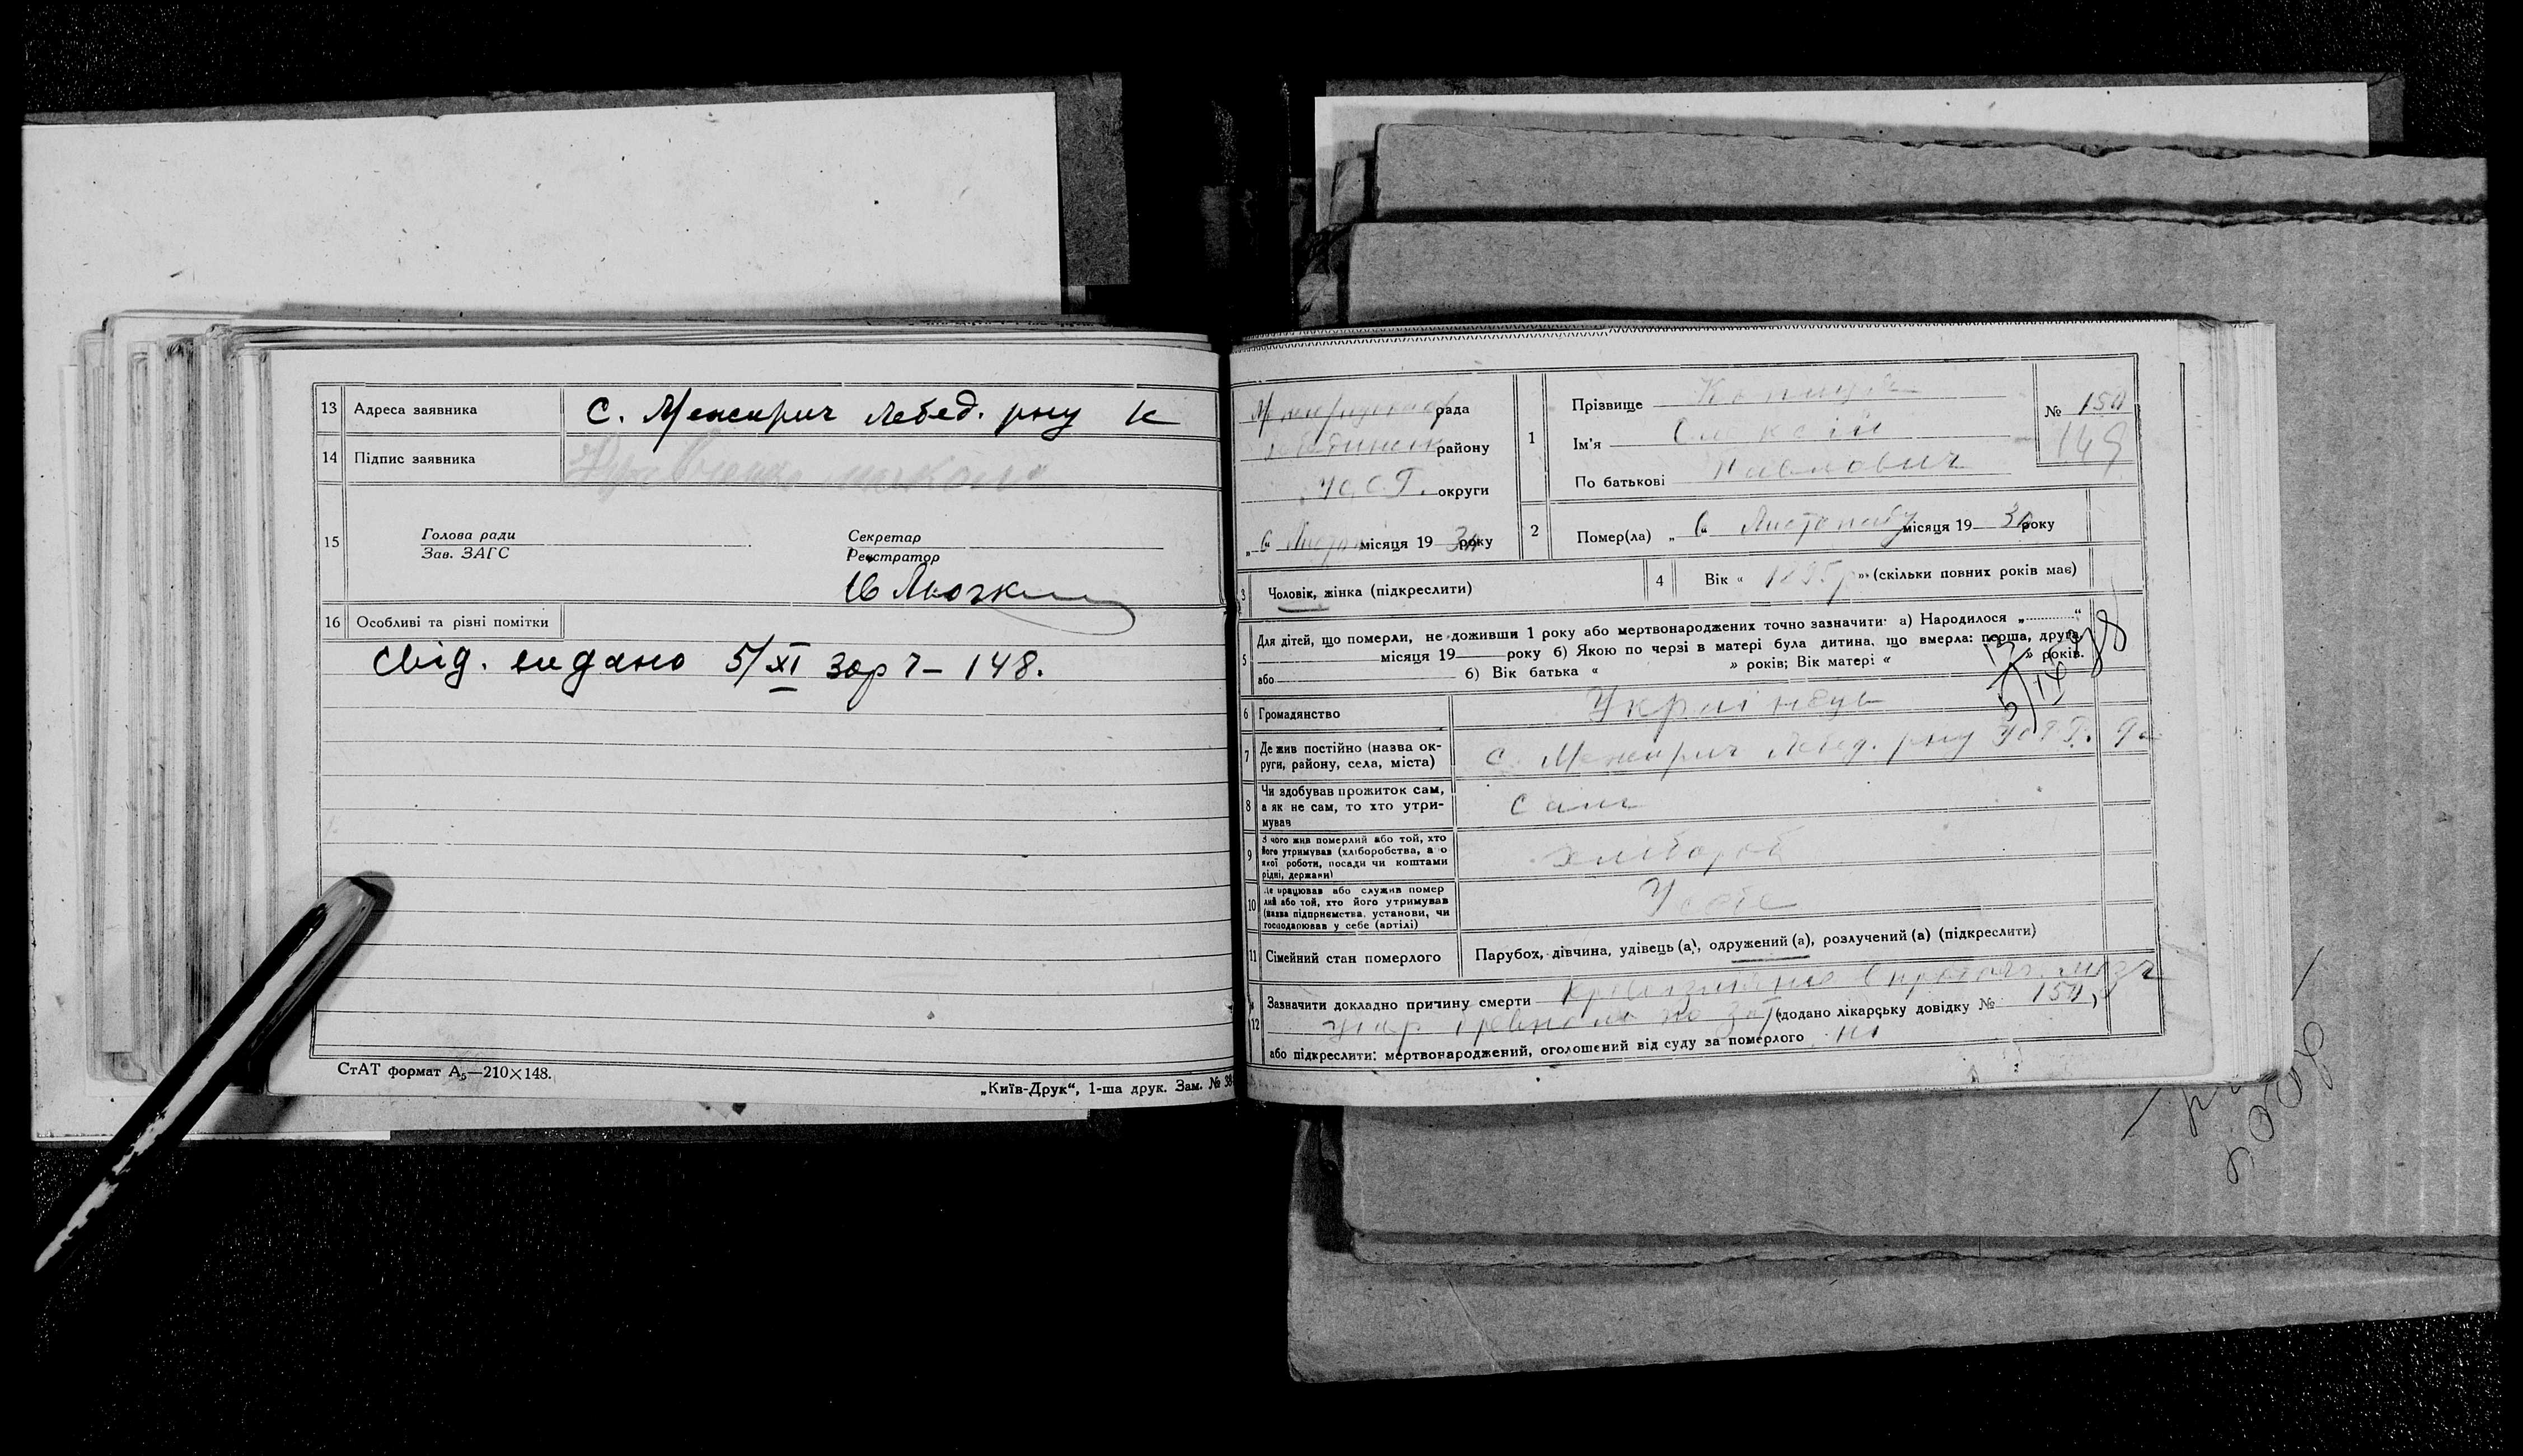 13 Адреса заявника С. Межирич Лебед. р-ну К
14 Підпис заявника
15 Голова ради
Зав. ЗАГС
Секретар
Реєстратор
16 Особливі та різні помітки
Свід. видано 5/XI 30р ч- 148.
СтАТ формат А5—210×148.
„Київ-Друк“, 1-ша друк. Зам. № 38
рада
району
округи
„ 6 “ місяця 19 30 року
1 Прізвище
Ім'я Олексій
По батькові Павлович
№ 150
149
2 Помер(ла) „ 6 “ Листопаду місяця 19 30 року
3 Чоловік, жінка (підкреслити)
4 Вік « 1895р »» (скільки повних років має)
5 Для дітей, що померли, не доживши 1 року або мертвонароджених точно зазначити: а) Народилося „ “
місяця 19 року б) Якою по черзі в матері була дитина, що вмерла: перша, друга
або б) Вік батька « » років; Вік матері « » років.
6 Громадянство Українець
7 Де жив постійно (назва ок-
руги, району, села, міста) с. Межирич Лебед. р-ну
8 Чи здобував прожиток сам,
а як не сам, то хто утри-
мував
сам
9 З чого жив померлий або той, хто
його утримував (хліборобства, а о
якої роботи, посади чи коштами
рідні, держави)
хлібороб
10 Де працював або служив помер
лий або той, хто його утримував
(назва підприємства, установи, чи
господарював у себе (артілі)
У себе
11 Сімейний стан померлого Парубок, дівчина, удівець (а), одружений (а), розлучений (а) (підкреслити)
12 Зазначити докладно причину смерти
(додано лікарську довідку № 150)
або підкреслити: мертвонароджений, оголошений від суду за померлого ні